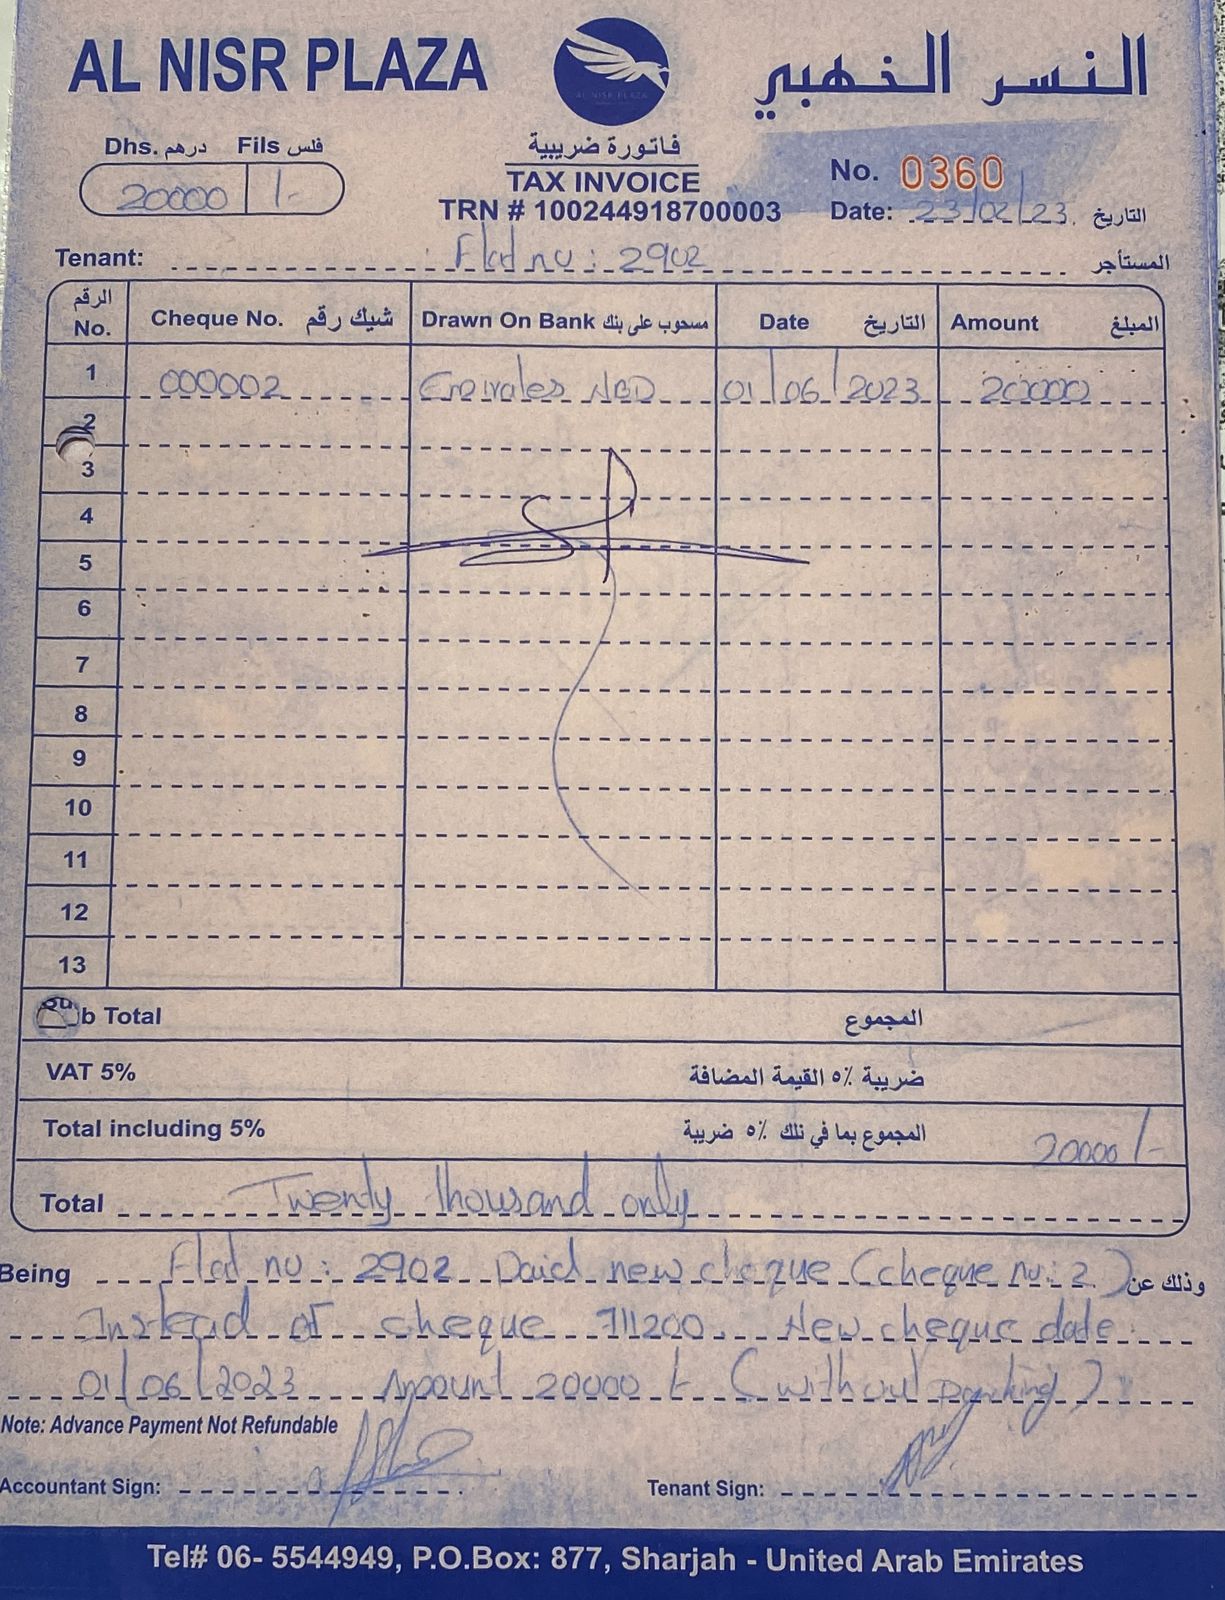 AL NISR PLAZA
النسر الذهبي
AL NISR PLAZA
Dhs. درهم Fils فلس
20000 /-
فاتورة ضريبية
TAX INVOICE
TRN # 100244918700003
No. 0360
Date: 23/02/23 التاريخ
Tenant: Flat no : 2902 المستأجر
الرقم No. Cheque No. شيك رقم Drawn On Bank مسحوب على بنك Date التاريخ Amount المبلغ
1 000002 Emirates NBD 01/06/2023 20000
2
3
4
5
6
7
8
9
10
11
12
13
Sub Total المجموع
VAT 5% ضريبة ٥٪ القيمة المضافة
Total including 5% المجموع بما في ذلك ٥٪ ضريبة 20000/-
Total Twenty thousand only
Being Flat no : 2902 Paid new cheque (cheque no: 2) وذلك عن
Instead of cheque 711200. New cheque date
01/06/2023 Amount 20000 (without parking)
Note: Advance Payment Not Refundable
Accountant Sign: Tenant Sign:
Tel# 06- 5544949, P.O.Box: 877, Sharjah - United Arab Emirates